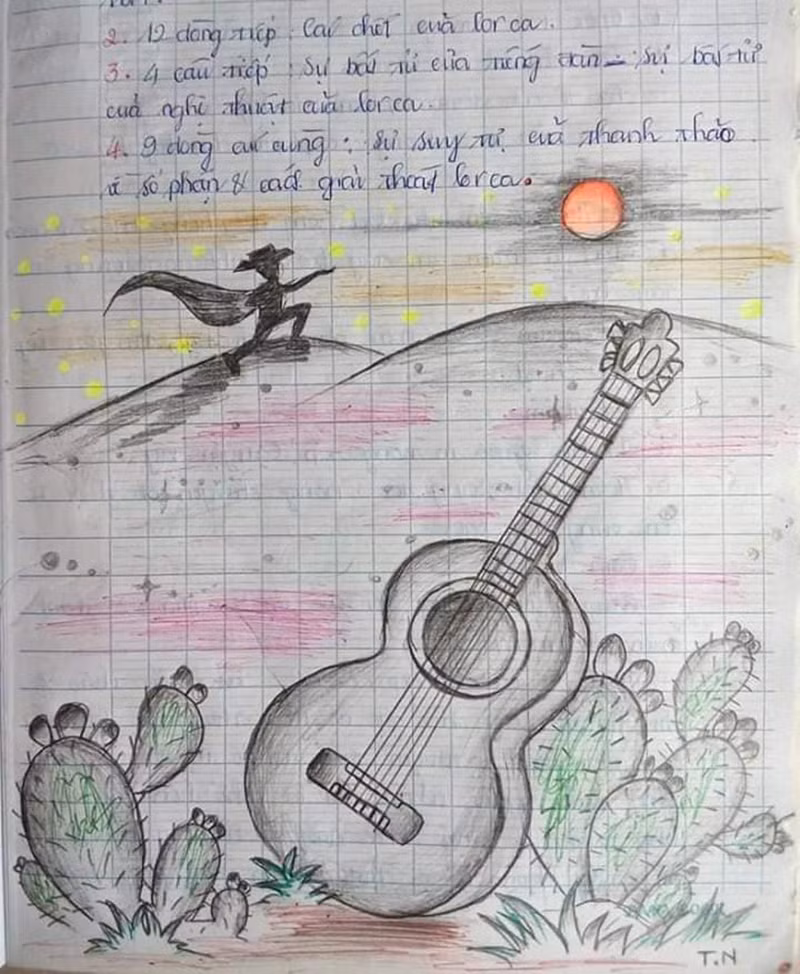 2. 12 dòng tiếp: Cái chết của lorca.
3. 4 câu tiếp: Sự bất tử của tiếng đàn - sự bất tử
của nghệ thuật của lorca.
4. 9 dòng cuối cùng: Sự suy tư của thanh thảo
về số phận & cách giải thoát lorca.
T.N